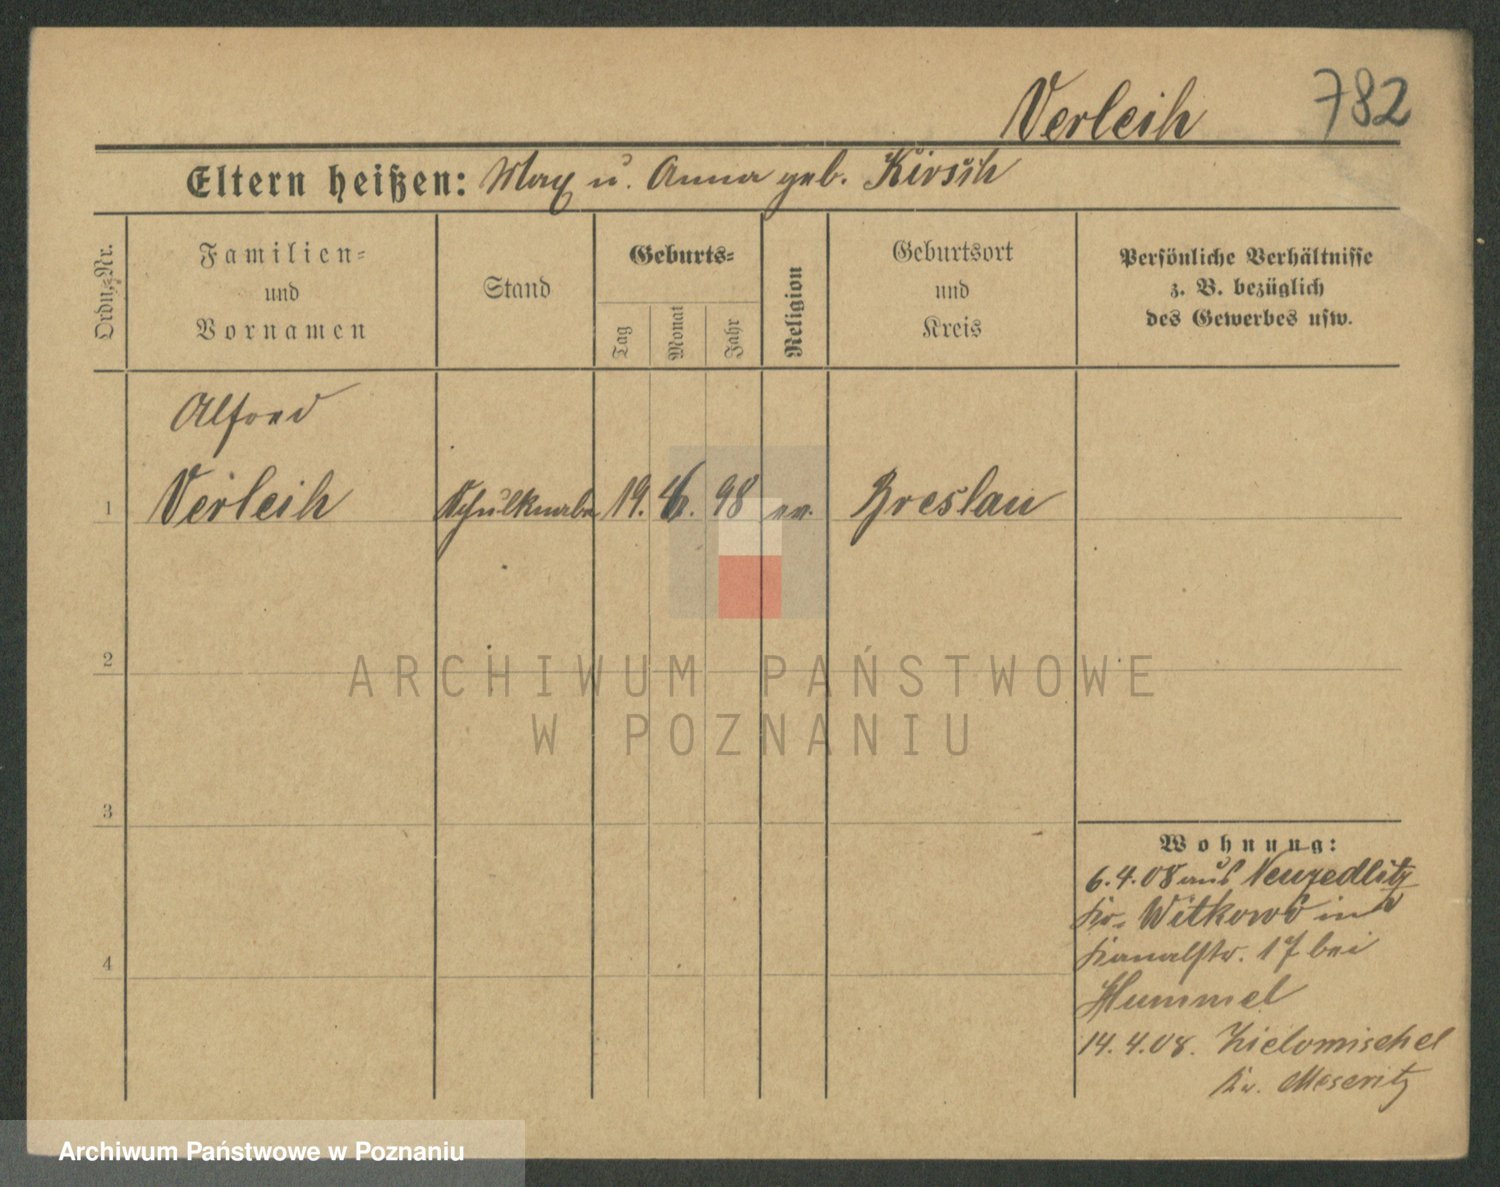 Verleih 782
Eltern heißen: Max u. Anna geb. Kirsch
Ordn.-Nr.
Familien-
und
Vornamen
Stand
Geburts-
Tag
Monat
Jahr
Religion
Geburtsort
und
Kreis
Persönliche Verhältnisse
z. B. bezüglich
des Gewerbes usw.
Alfred
1 Verleih Schulknabe 19. 6. 98 ev. Breslau
2
3
4
Wohnung:
6.4.08 aus Neuzedlitz
Kr. Witkowo in
Kanalstr. 17 bei
Hummel
14.4.08. Kielomischel
Kr. Meseritz
ARCHIWUM PAŃSTWOWE
W POZNANIU
Archiwum Państwowe w Poznaniu